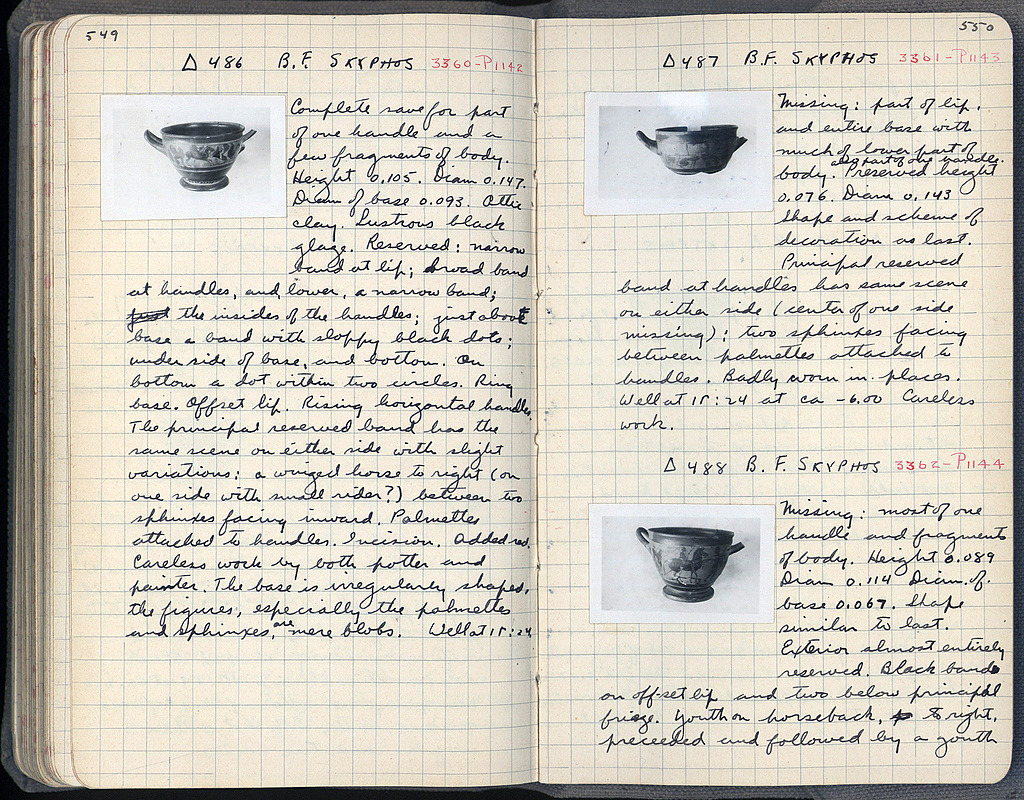 549
Δ 486 B.F. SKYPHOS 3360-P1142
Complete save for part
of one handle and a
few fragments of body.
Height 0.105. Diam 0.147.
Diam of base 0.093. Attic
clay. Lustrous black
glaze. Reserved: narrow
band at lip; broad band
at handles, and, lower, a narrow band;
the insides of the handles; just above
base a band with sloppy black dots;
under side of base, and bottom. On
bottom a dot within two circles. Ring
base. Offset lip. Rising horizontal handles.
The principal reserved band has the
same scene on either side with slight
variations: a winged horse to right (on
one side with small rider?) between two
sphinxes facing inward. Palmettes
attached to handles. Incision. Added red.
Careless work by both potter and
painter. The base is irregularly shaped,
the figures, especially the palmettes
and sphinxes, are mere blobs. Well at 15:24
550
Δ 487 B.F. SKYPHOS 3361-P1143
Missing: part of lip,
and entire base with
much of lower part of
also part of one handles.
body. Preserved height
0.076. Diam 0.143
Shape and scheme of
decoration as last.
Principal reserved
band at handles has same scene
on either side (center of one side
missing): two sphinxes facing
between palmettes attached to
handles. Badly worn in places.
Well at 15:24 at ca -6.00 Careless
work.
Δ 488 B.F. SKYPHOS 3362-P1144
Missing: most of one
handle and fragments
of body. Height 0.089
Diam 0.114 Diam. of.
base 0.067. Shape
similar to last.
Exterior almost entirely
reserved. Black bands
on off-set lip and two below principal
frieze. Youth on horseback, to right,
preceeded and followed by a youth